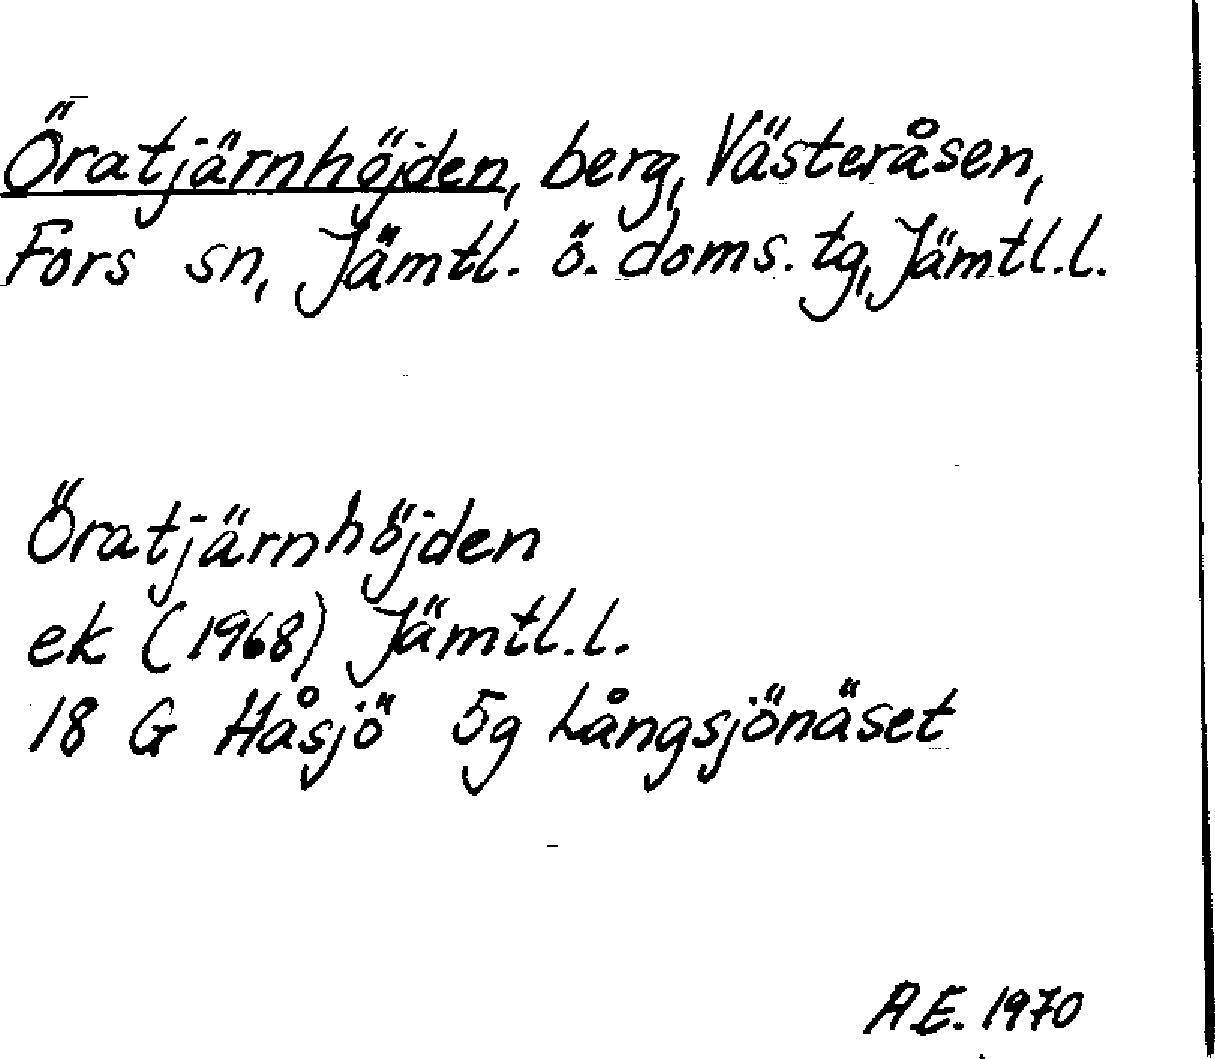 Öratjärnhöjden, berg, Västeråsen,
Fors sn, Jämtl. ö. doms. tg, Jämtl.l.
Öratjärnhöjden
ek (1968) Jämtl.l.
18 G Håsjö 5g Långsjönäset
A.E. 1970